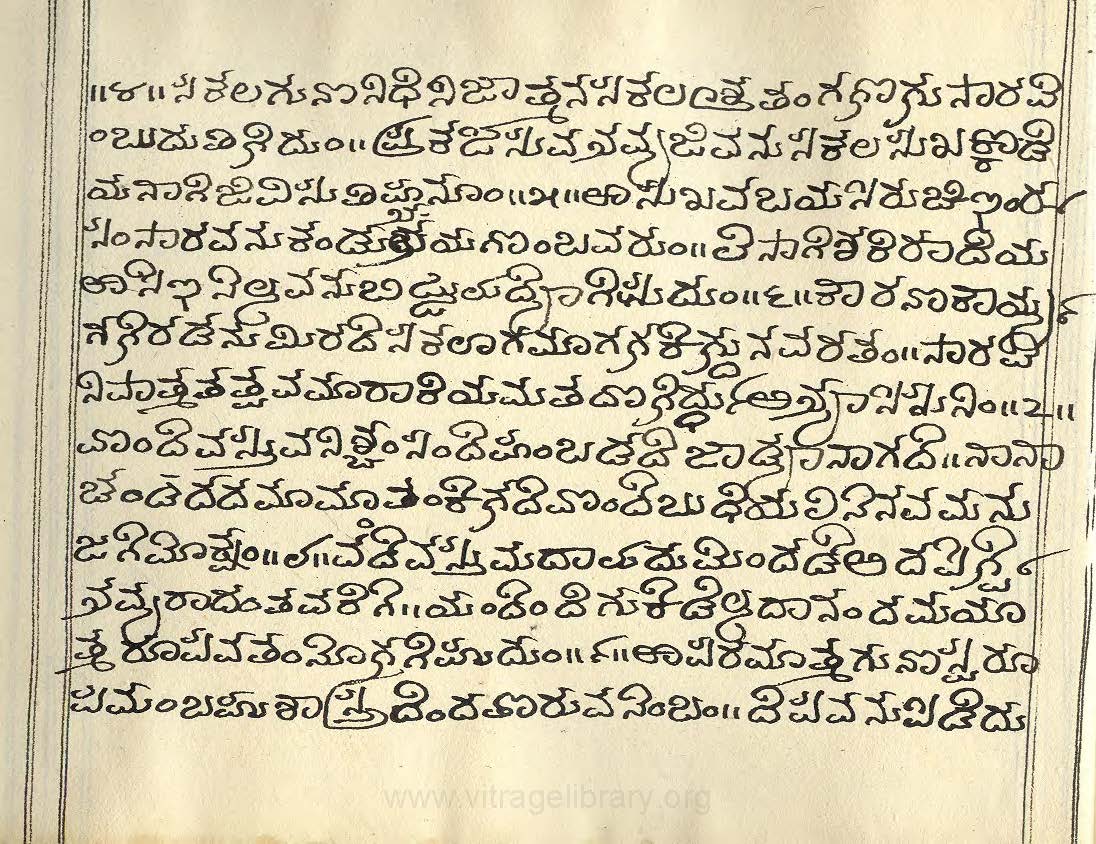 ॥೪॥ ಸಕಲಗುಣನಿಧಿನಿಜಾತ್ಮನಸಕಲೋತ್ಕೃತಂಗಗಗುಸಾರವೆ
ಂಬುದುತಿಳಿದುಂ॥ ಪ್ರಕಟಿಸುವಭವ್ಯಜಿವನುಸಕಲಸುಖಕ್ಕೊಡೆ
ಯನಾಗಿಜಿವಿಸುತಿಪ್ಪನೋಂ॥೫॥ಆಸುಖವಬಯಸಿರುಚಿಇಂದ
ಸಂಸಾರವನುಕಂಡುಭಯಗೊಂಬವರುಂ॥ ಲೆಸಾಗಿಶಕಿರಾದಿಯ
ಆಸಿಇನಿಲ್ಲವನುಬಿದ್ದುಳುದ್ಯೋಗಿಪುದುಂ॥೬॥ಕಾರಣಕಾರ್ಯ
ಗಳೆರಡನುಮಿರದೆಸಕಲಾಗಮಾಗಳಕೆಳ್ದುನವರತಂ॥ಸಾರವೆ
ನಿಪಾತ್ಮತತ್ವವಮಾರಾಕಿಯಮತದೊಳಿರ್ದುಅಭ್ಯಾಸಿಸುನಿಂ॥೭॥
ವೊಂದೆವಸ್ತುವನಿಶ್ಚಂಸಂದೆಹಂಬಡದೆಜಾಡ್ಯಾನಾಗದೆ॥ನಾನಾ
ಚಂದದದಮಾಮಾತಂಕೆಳದೆವೊಂದೆಬುಧಿಯಲಿನೆನವಮನು
ಜಗೆಮೋಕ್ಷಂ॥೮॥ವೆಡಿವಸ್ತುಮದಾಳದುಮಿಂದಡೆಅದಪಿಗ್ಪೆ
ಭವ್ಯರಾದಂತವರಿಗೆ॥ಯಂದೆಂದಿಗುಕೆಡೆಲ್ಲದಾನಂದಮಯಾ
ತ್ಮರೂಪವತಂನೊಳಗಿಹುದುಂ॥೯॥ಆಪರಮಾತ್ಮಗುಣಸ್ವರೂ
ಪಮಂಬಹುಶಾಸ್ತ್ರದಿಂದತೊರುವನೆಂಬಂ॥ ದಿಪವನುಪಿಡಿದು
www.vitragelibrary.org